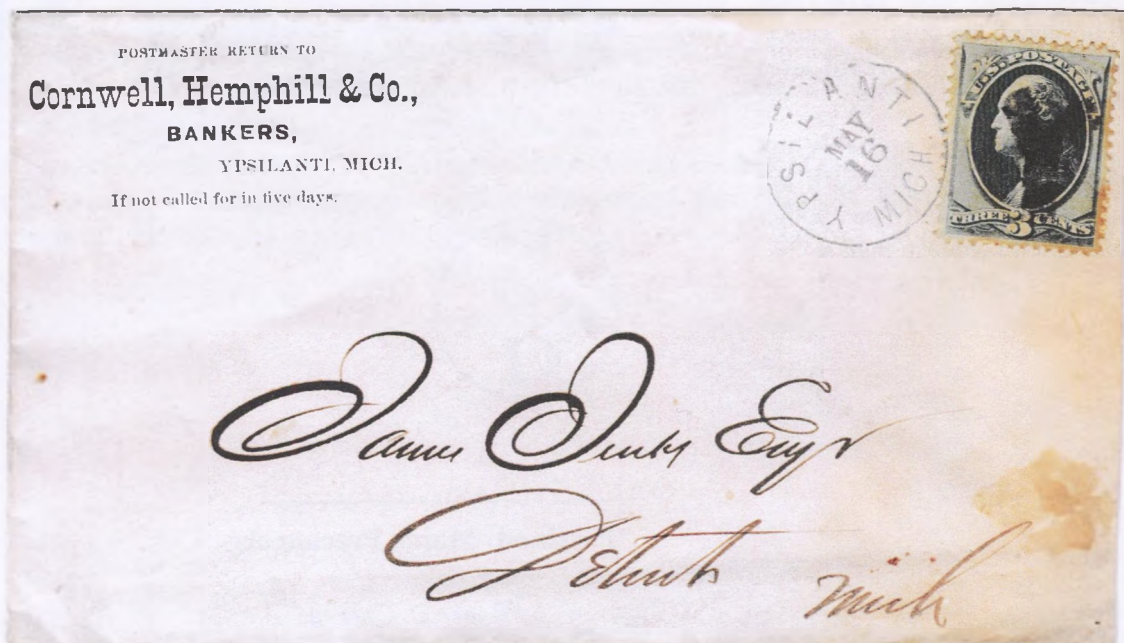 POSTMASTER RETURN TO
Cornwell, Hemphill & Co.,
BANKERS,
YPSILANTI, MICH.
If not called for in five days.
YPSILANTI MICH
MAY
16
U.S. POSTAGE
THREE 3 CENTS
James Esqr
Detroit
Mich